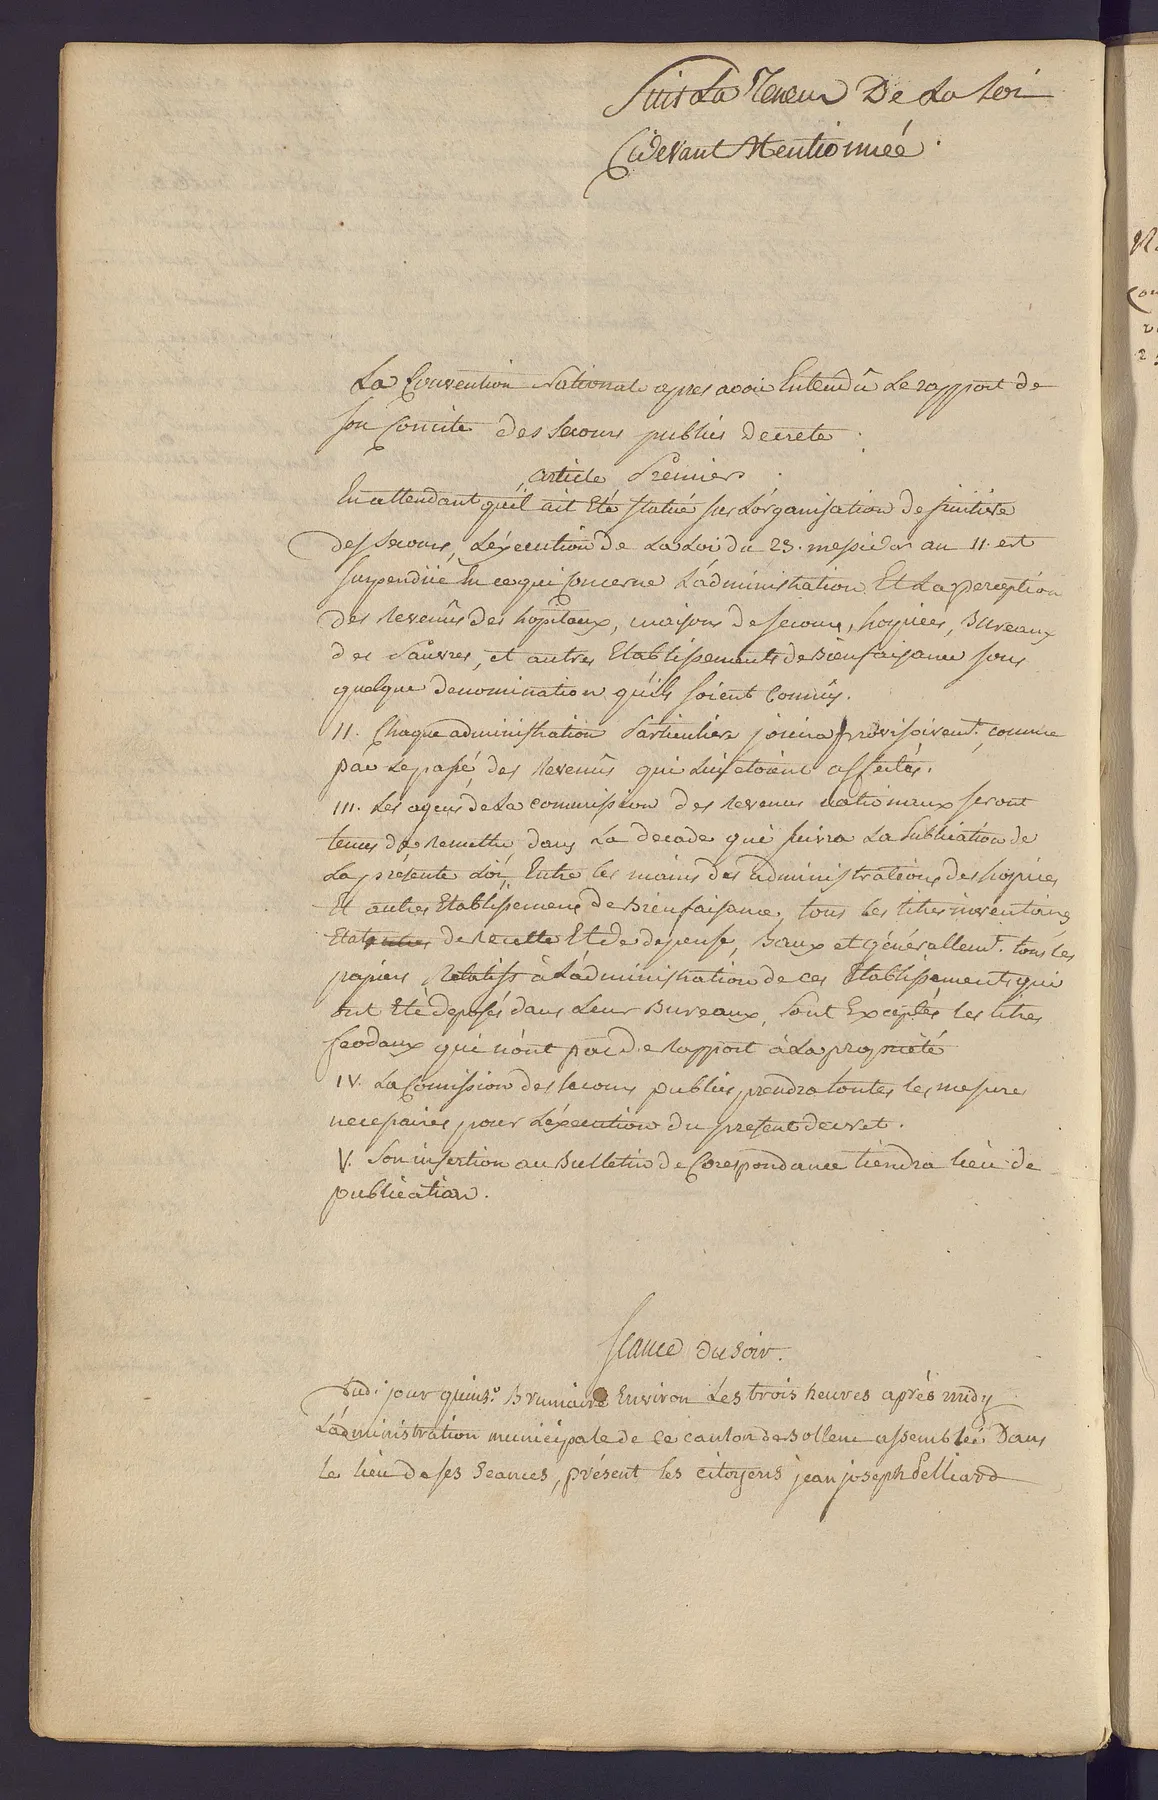 Suit La Teneur De La Loi
Cidevant Mentionnéé.
La Convention Nationale apres avoir Entendû Le rapport de
son Comite des secours publics Decrete :
article Premier.
En attendant qu'il ait Eté statué sur L'organisation definitive
des secours, L'éxecution de La Loi du 23. messidor an 11. est
suspendüe En ce qui Concerne L'administration Et La perception
des Revenûs des hopitaux, maisons de secours, hospices, Bureaux
des Pauvres, et autres Etablissements de Bienfaisance sous
quelque denomination qu'ils soient Connûs.
11. Chaque administration Particuliere joüira provisoirem.t comme
par Le passé, des Revenûs qui Lui etoient affectés.
111. Les agens de La commission des Revenus nationaux seront
tenus de Remettre dans La decade qui suivra La Publication de
La présente Loi, Entre les mains des administrations des hospices
Et autres Etablissemens de Bienfaisance, tous les titres inventaires
Etats de Recette Et de depense, Baux et générallem.t tous les
papiers Relatifs à L'administration de ces Etablissements qui
ont Eté deposés dans Leur Bureaux, sont Exceptés, les titres
feodaux qui n'ont pas de Rapport à La propriété
IV. La Comission des secours publics, prendra toutes les mesures
necessaires pour L'éxecution du present decret.
V. Son insertion au Bulletin de Corespondance tiendra lieu de
publication.
seance du soir.
Dud.i jour quinz.e Brumaire Environ Les trois heures après midy
L'administration municipale de ce canton de Bollene assemblée Dans
le lieu de ses seances, présent les citoyens jean joseph Pelliard